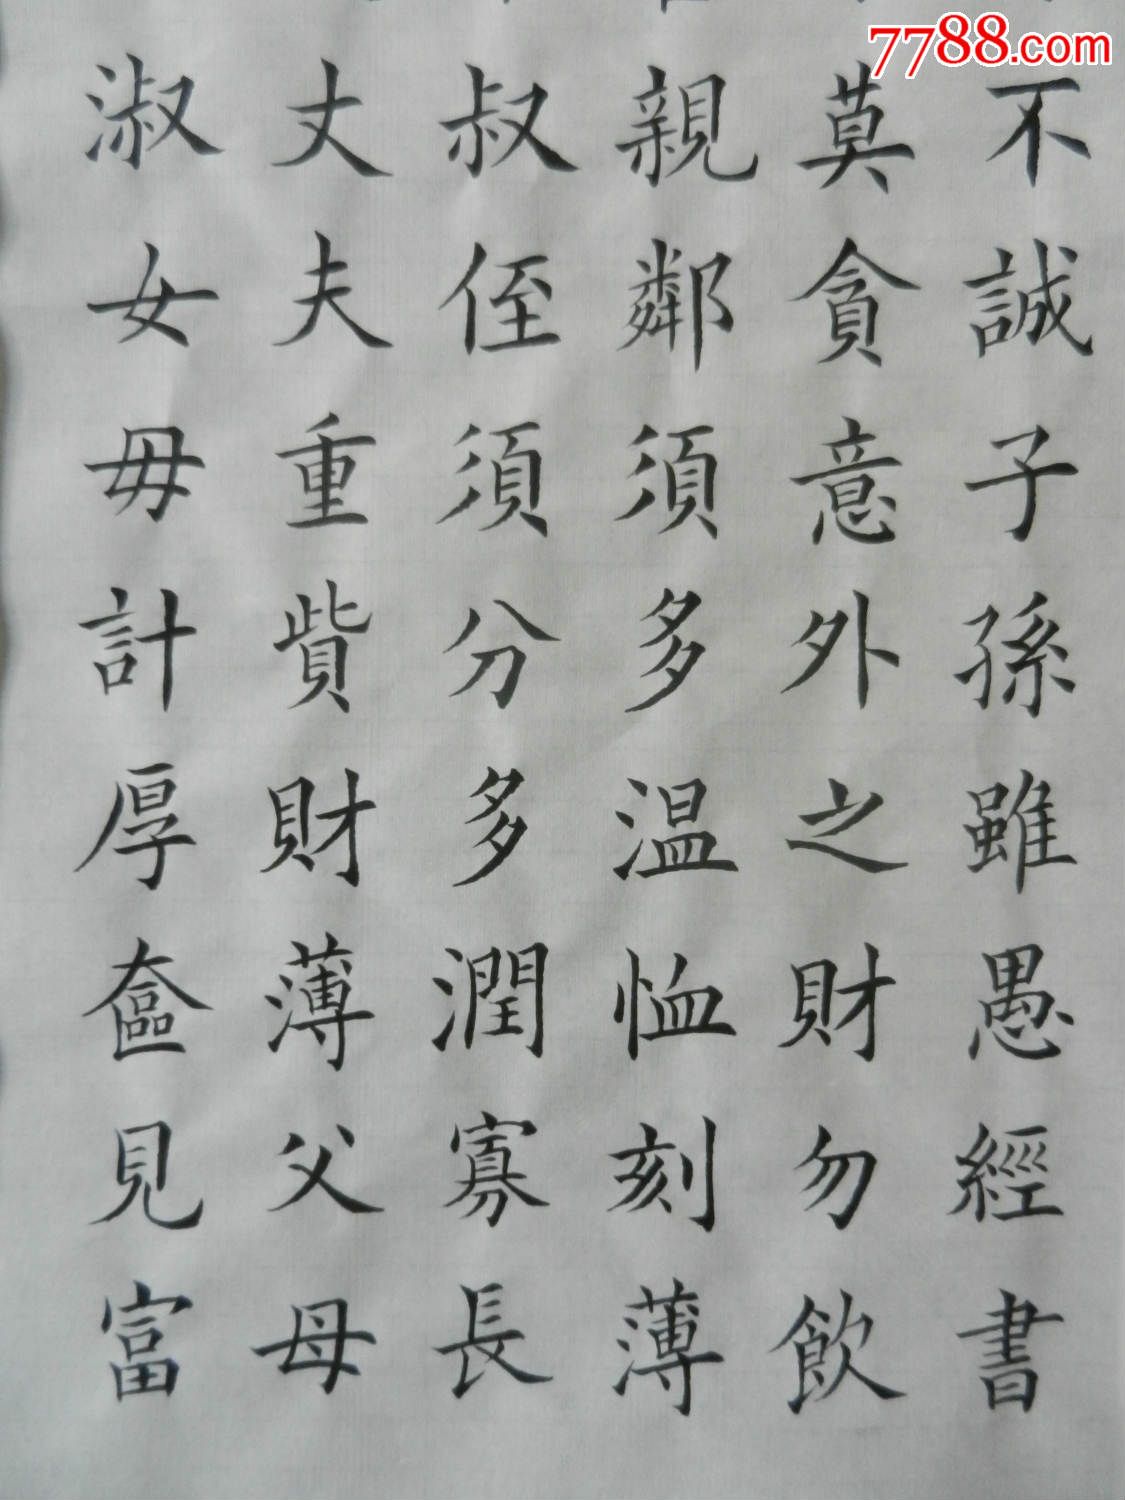 7788.com
不誠子孫雖愚經書
莫貪意外之財勿飲
親鄰須多温恤刻薄
叔侄須分多潤寡長
丈夫重貲財薄父母
淑女毋計厚奩見富